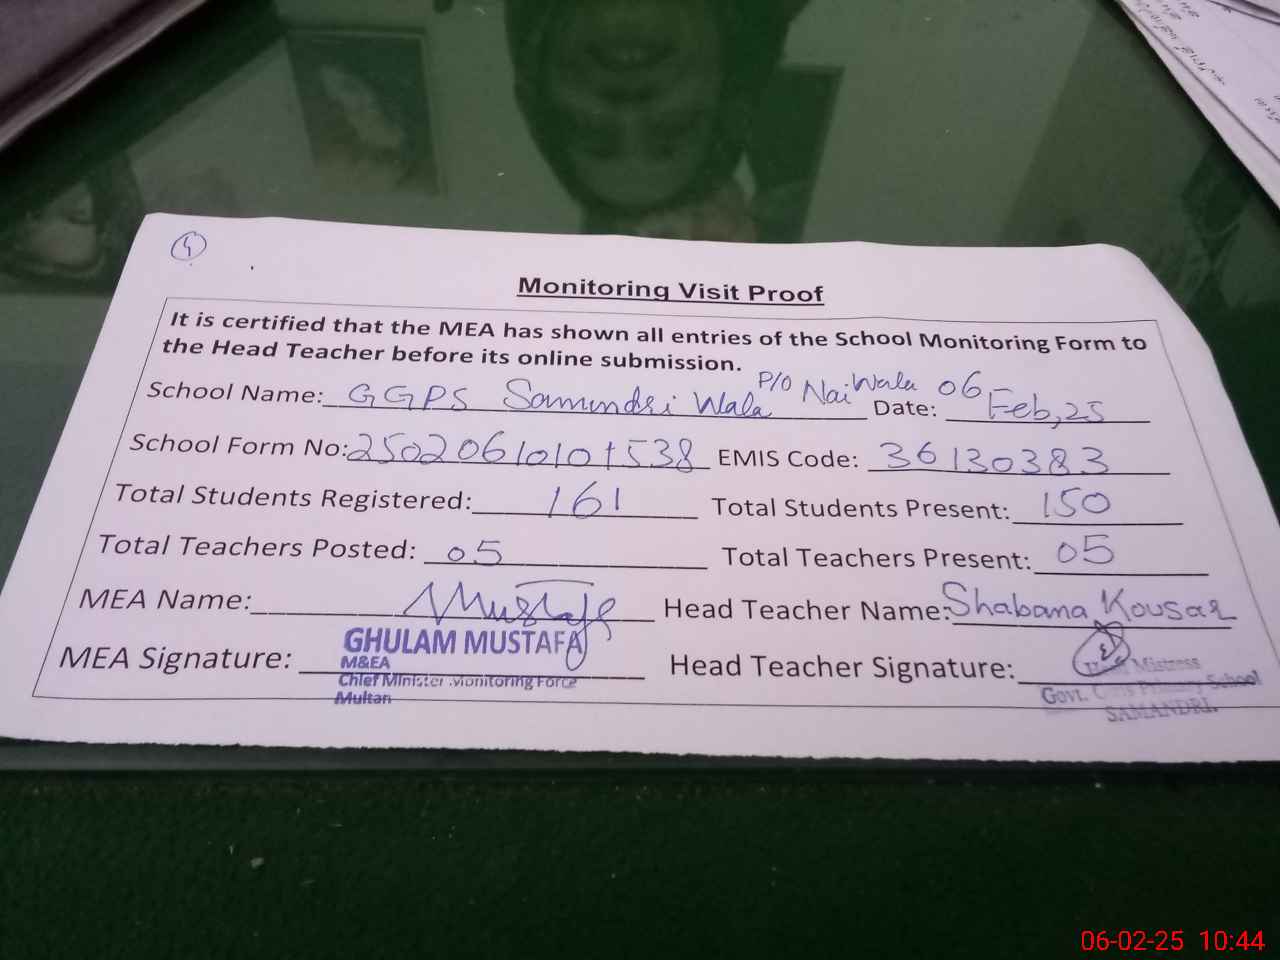 4
Monitoring Visit Proof
It is certified that the MEA has shown all entries of the School Monitoring Form to
the Head Teacher before its online submission.
School Name: GGPS Samundri Wala P/O Nai Wala Date: 06 Feb, 25
School Form No: 2502061010 1538 EMIS Code: 36130383
Total Students Registered: 161 Total Students Present: 150
Total Teachers Posted: 05 Total Teachers Present: 05
MEA Name: Mustafa Head Teacher Name: Shabana Kousar
GHULAM MUSTAFA
MEA Signature: Head Teacher Signature:
M&EA
Chief Minister Monitoring Force
Multan
Mistress
Govt. Girls Primary School
SAMANDRI.
06-02-25 10:44